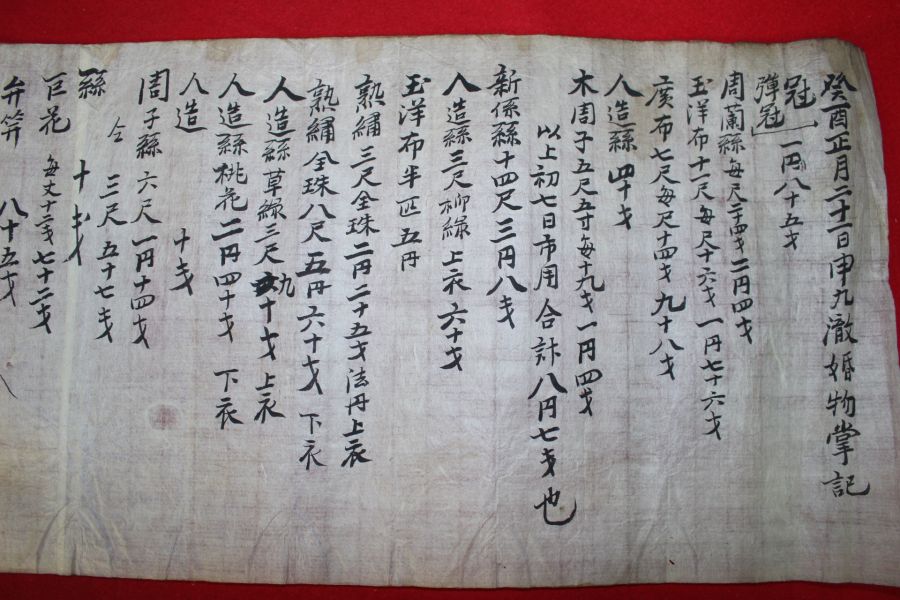 癸酉正月二十一日申九澈婚物掌記
冠
彈冠 一円八十五戔
周蘭絲每尺二十四戔二円四戔
玉洋布十一尺每尺十六戔 一円七十六戔
廣布七尺每尺十四戔 九十八戔
人造絲 四十戔
木周子五尺五寸每十九戔 一円四戔
以上初七日市用合計 八円七戔也
新係絲十四尺 三円八戔
人造絲三尺柳綠 上衣 六十戔
玉洋布半匹 五円
熟繡三尺全珠 二円二十五戔 法丹上衣
熟繡全珠八尺 五円六十戔 下衣
人造絲草綠三尺 九十戔 上衣
人造絲桃花 二円四十戔 下衣
人造 十戔
周子絲六尺 一円十四戔
仝 三尺 五十七戔
絲 十戔
巨花 每丈十二戔 七十二戔
弁笄 八十五戔